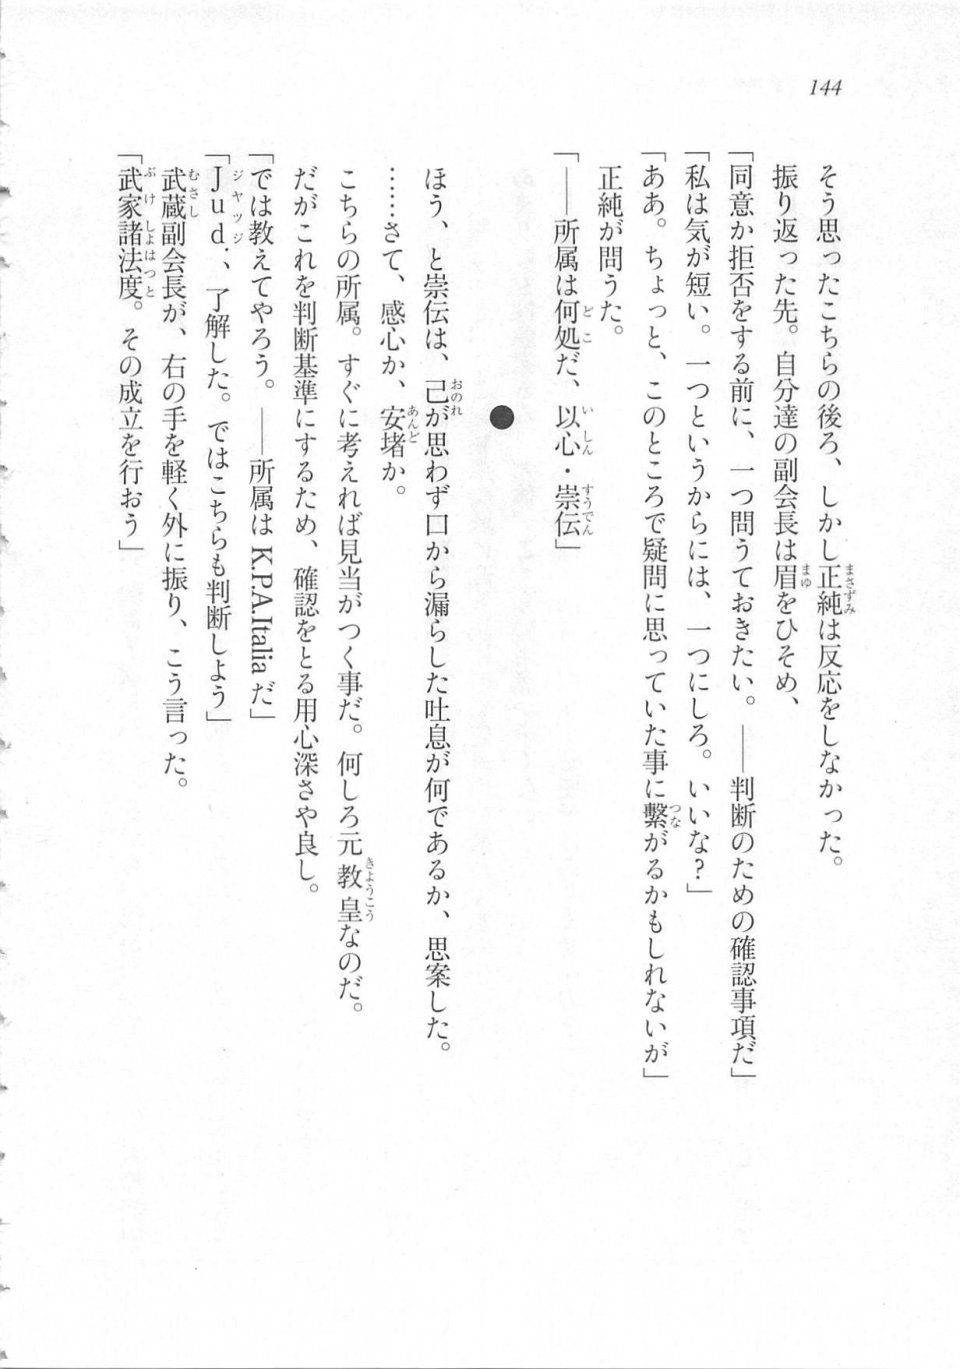 144
そう思ったこちらの後ろ、しかし正純は反応をしなかった。
振り返った先。自分達の副会長は眉をひそめ、
「同意か拒否をする前に、一つ問うておきたい。――判断のための確認事項だ」
「私は気が短い。一つというからには、一つにしろ。いいな？」
「ああ。ちょっと、このところで疑問に思っていた事に繫がるかもしれないが」
正純が問うた。
「――所属は何処だ、以心・崇伝」
●
ほう、と崇伝は、己が思わず口から漏らした吐息が何であるか、思案した。
……さて、感心か、安堵か。
こちらの所属。すぐに考えれば見当がつく事だ。何しろ元教皇なのだ。
だがこれを判断基準にするため、確認をとる用心深さや良し。
「では教えてやろう。――所属は K.P.A.Italia だ」
「Jud.、了解した。ではこちらも判断しよう」
武蔵副会長が、右の手を軽く外に振り、こう言った。
「武家諸法度。その成立を行おう」